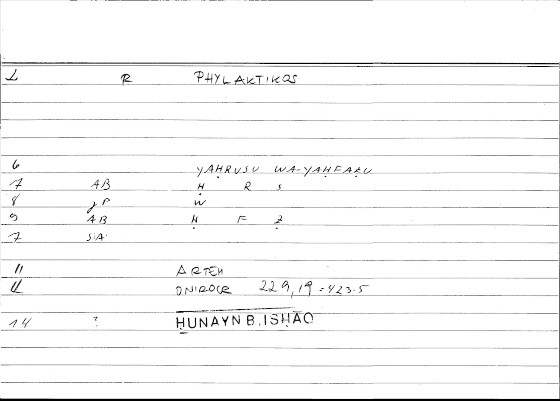 1 R PHYLAKTIKOS
6 YAḤRUSU WA-YAḤFAẒU
7 AB Ḥ R S
8 W
9 AB Ḥ F Ẓ
7 SA
11 ARTEM
12 ONIROCR 229,19 = 423.5
14 ? ḤUNAYN B. ISḤĀQ